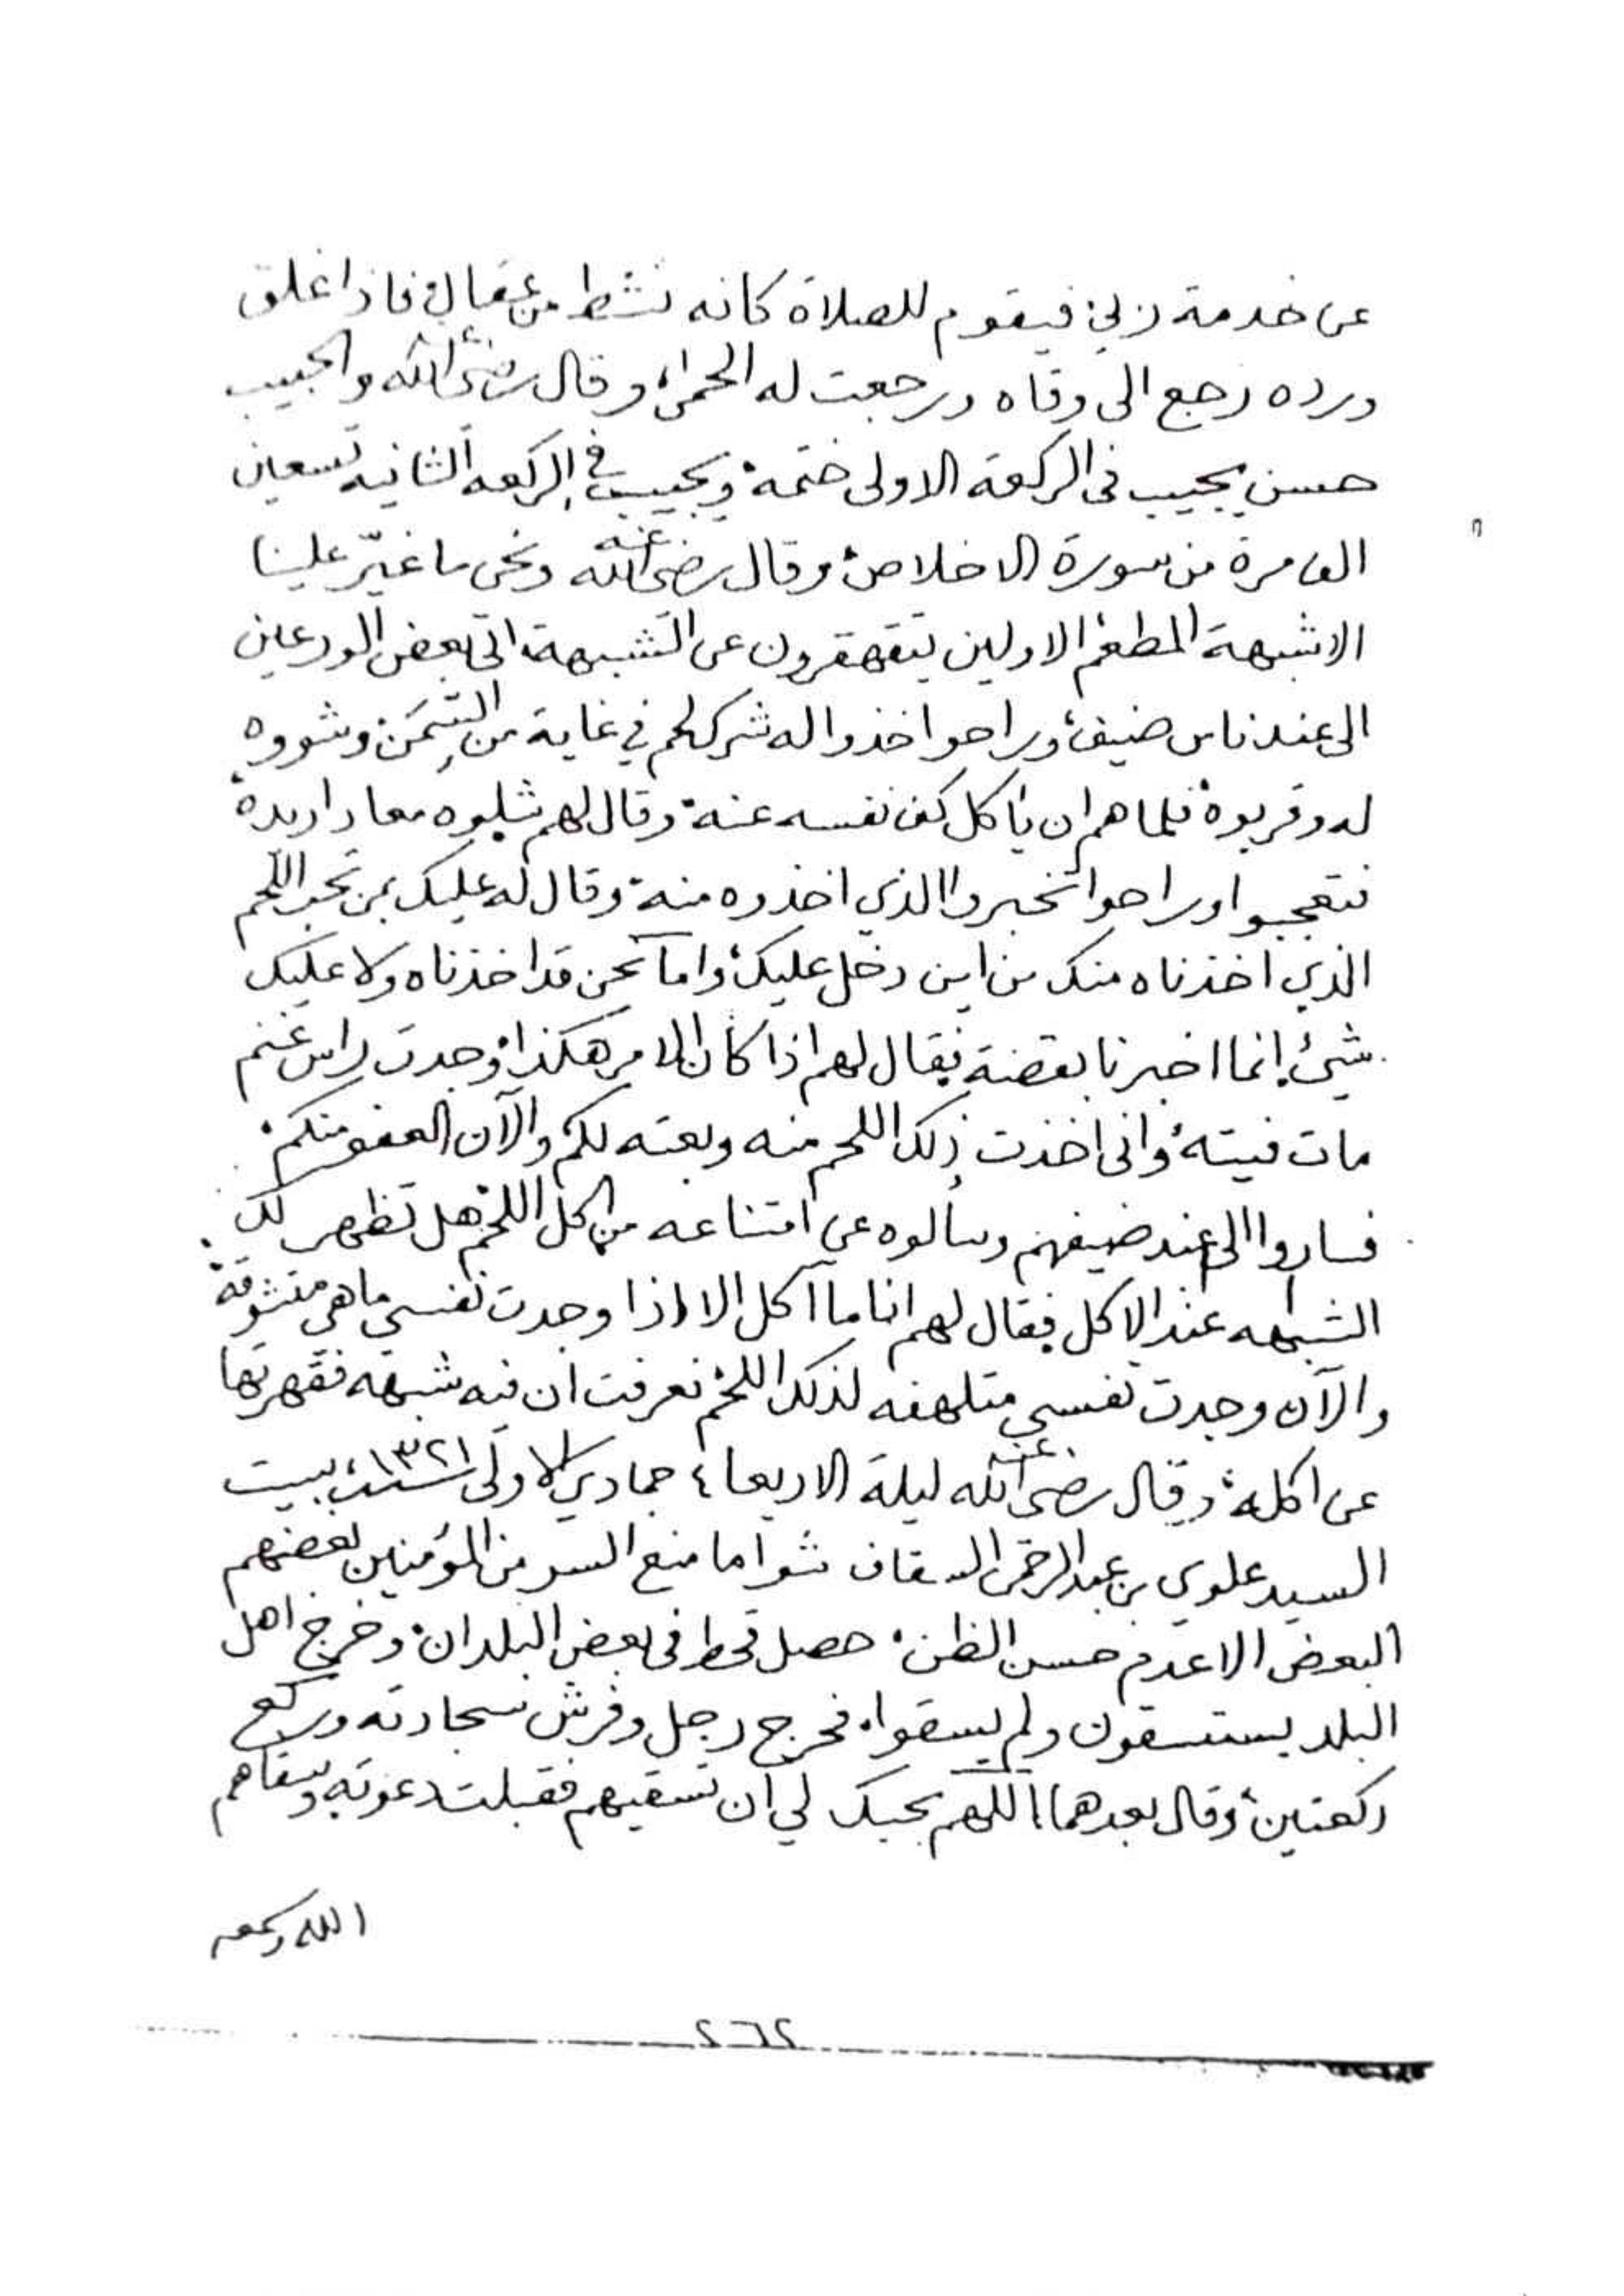 عن خدمة ربي، فيقوم للصلاة كانه نشط من عقال، فاذا غلق
ورده رجع الى وقاه ورجعت له الحمى، وقال رضي الله عنه والحبيب
حسن يجيب في الركعة الاولى ختمة، ويجيب في الركعه الثانيه تسعين
الف مرة من سورة الاخلاص، وقال رضي الله عنه ونحن ما غيّر علينا
الا شبهة المطعم، الاولين يتقهقرون عن الشبهة، اتى بعض الورعين
الى عند ناس ضيف، وراحوا اخذوا له شرك لحم في غاية من السِّمَن، وشووه
له وقربوه، فلما هم ان يأكل كف نفسه عنه، وقال لهم شلوه معاد اريده،
فتعجبوا وراحوا تخبروا الذي اخذوه منه، وقال له عليك بمن تحب اللحم
الذي اخذناه منك من اين دخل عليك، واما نحن قد اخذناه ولا عليك
شيء، إنما اخبرنا بقصته، فقال لهم اذا كان الامر هكذا، وجدت راس غنم
مات فيتة، واني اخذت ذلك اللحم منه وبعته لكم، والآن العفو منكم،
فساروا الى عند ضيفهم وسألوه عن امتناعه من اكل اللحم، هل تظهر لك
الشبهه عند الاكل، فقال لهم انا ما آكل الا اذا وجدت نفسي ما هي متشوقة،
والآن وجدت نفسي متلهفه لذلك اللحم، فعرفت ان فيه شبهه فقهرتها
عن اكله، وقال رضي الله عنه ليلة الاربعا ٤ جمادي الاولى سنة ١٣٢١، ببيت
السيد علوي بن عبد الرحمن السقاف شوا ما منع السر من المؤمنين بعضهم
البعض الا عدم حسن الظن، حصل قحط في بعض البلدان، وخرج اهل
البلد يستسقون ولم يسقوا، فخرج رجل وفرش سجادته وركع
ركعتين، وقال بعدهما اللهم بحبك لي ان تسقيهم فقبلت دعوته وسقاهم
الله وكمه
٢٦٢